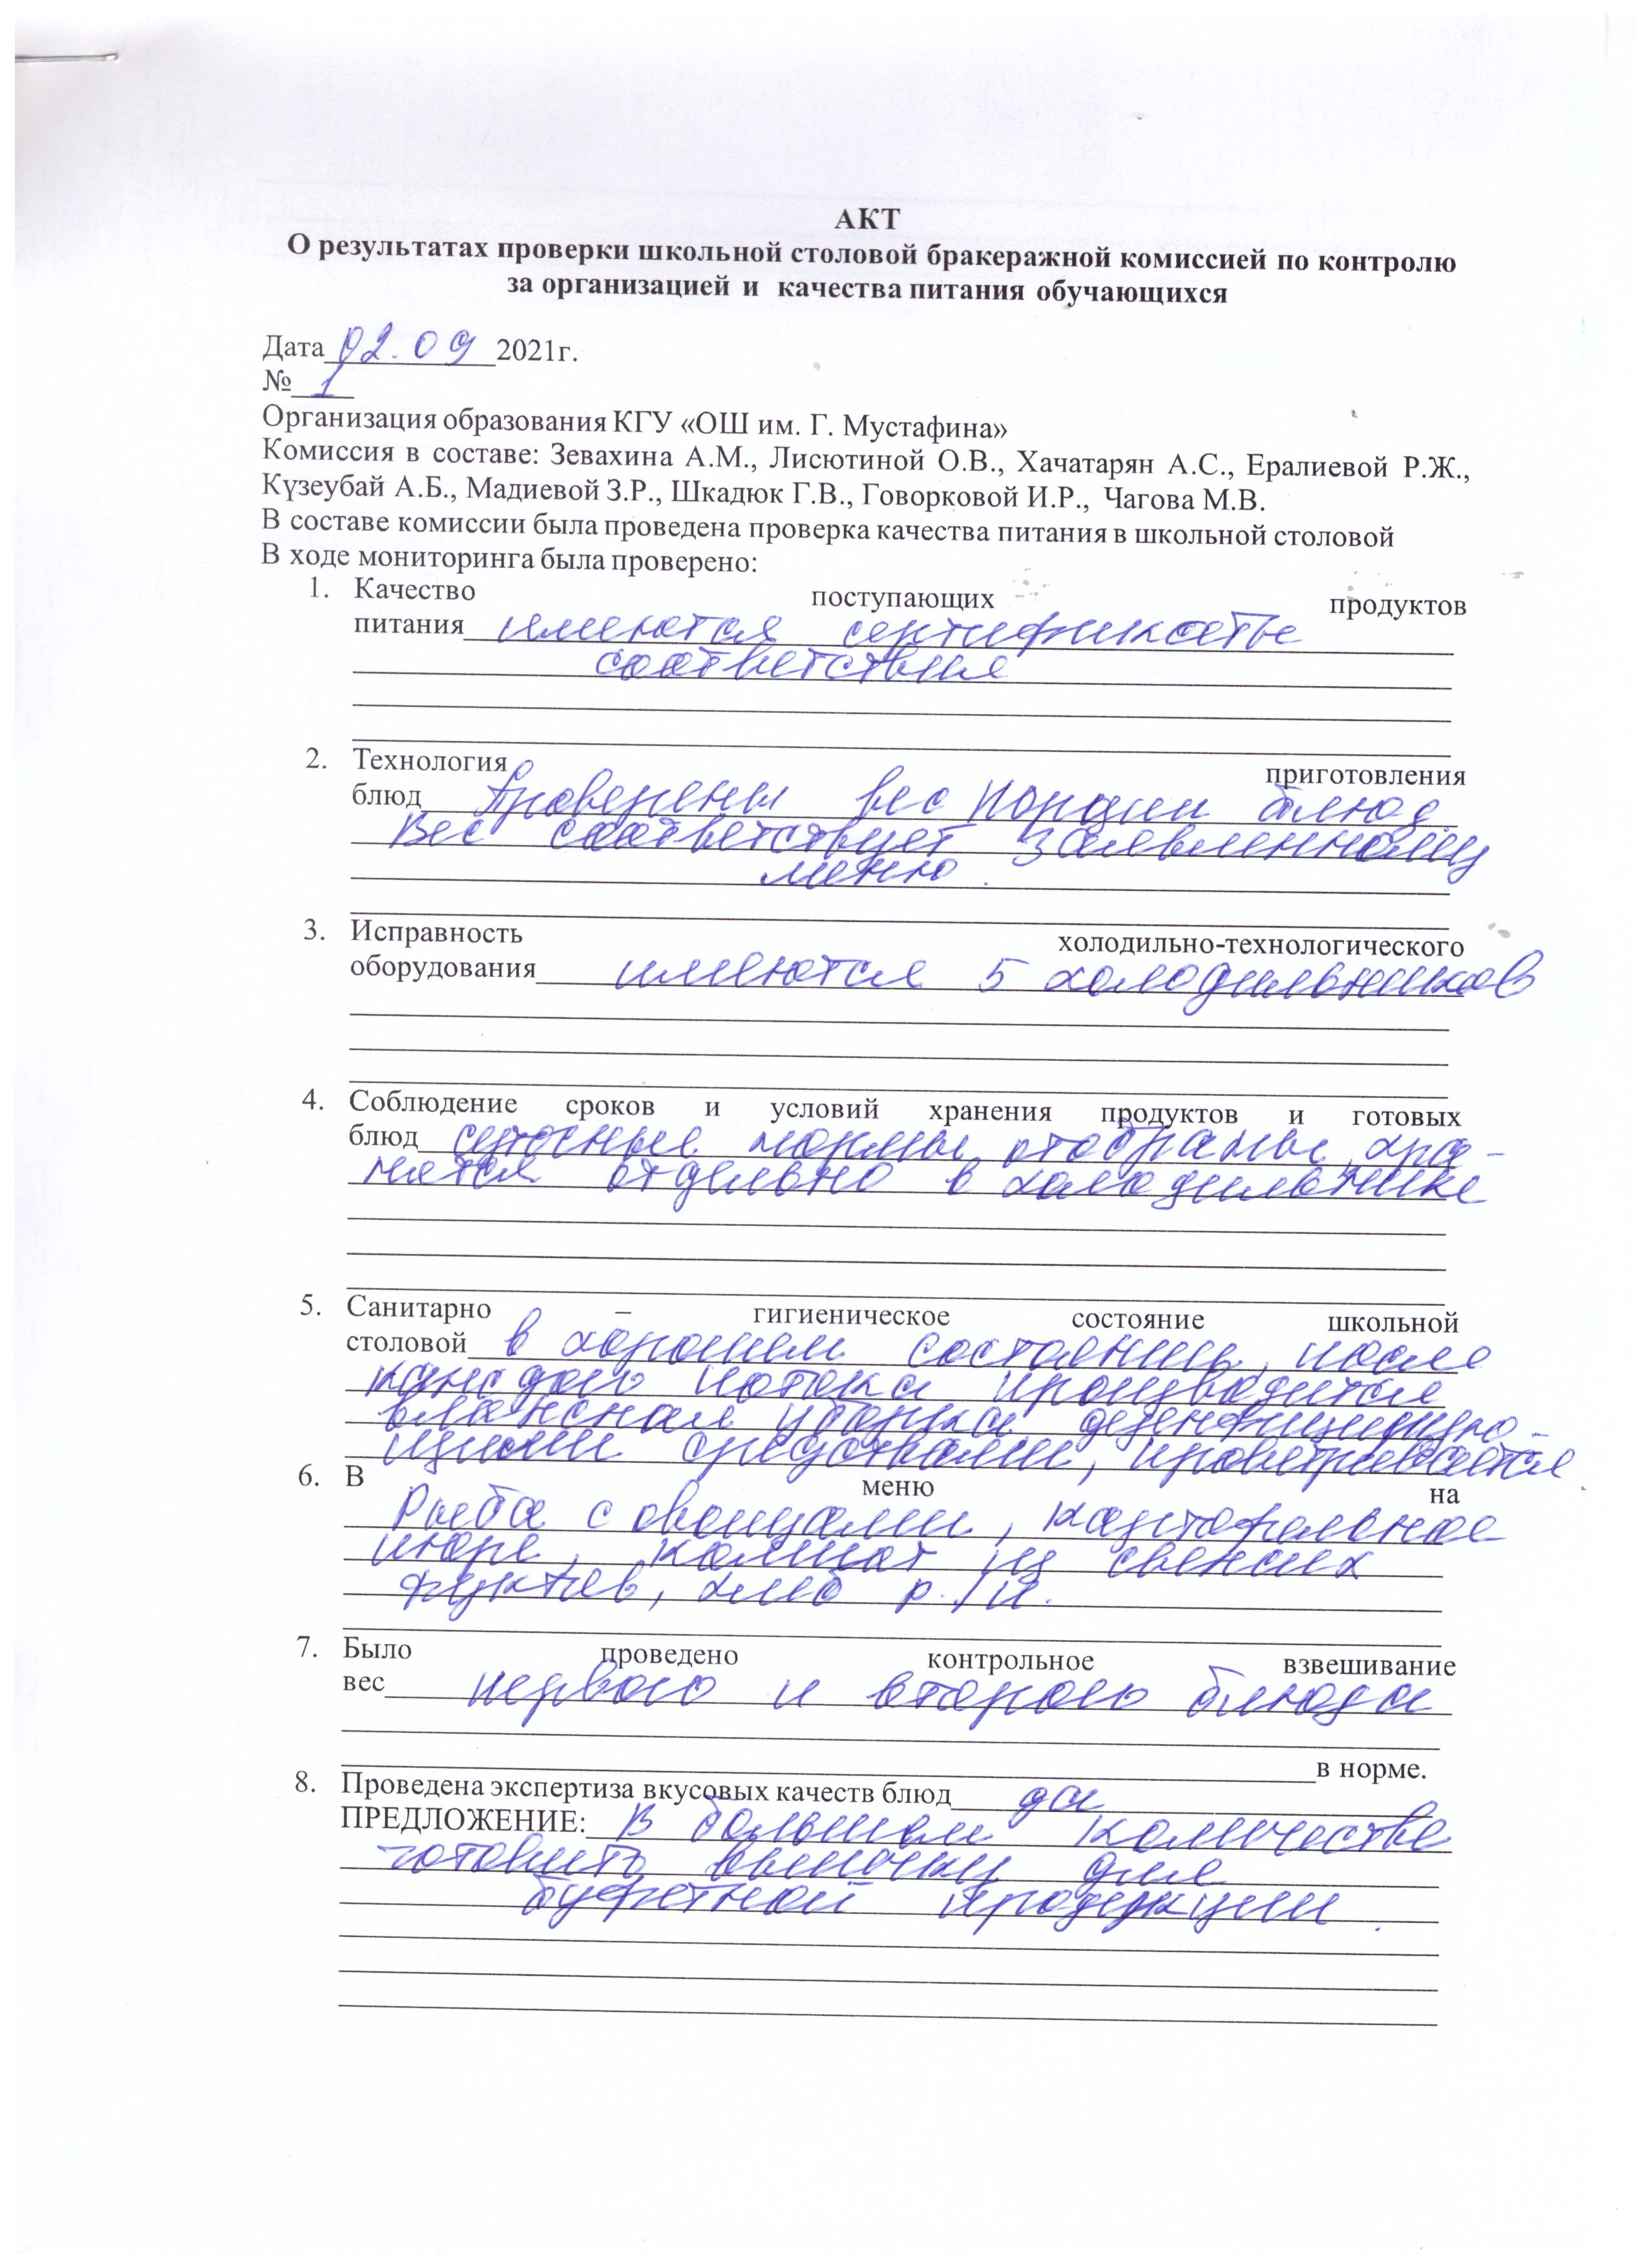 АКТ
О результатах проверки школьной столовой бракеражной комиссией по контролю
за организацией и качества питания обучающихся
Дата 02.09 2021г.
№ 1
Организация образования КГУ «ОШ им. Г. Мустафина»
Комиссия в составе: Зевахина А.М., Лисютиной О.В., Хачатарян А.С., Ералиевой Р.Ж.,
Күзеубай А.Б., Мадиевой З.Р., Шкадюк Г.В., Говорковой И.Р., Чагова М.В.
В составе комиссии была проведена проверка качества питания в школьной столовой
В ходе мониторинга была проверено:
1. Качество поступающих продуктов
питания имеются сертификаты
соответствия
2. Технология приготовления
блюд Проверены вес порции блюд.
Вес соответствует заявленному
меню.
3. Исправность холодильно-технологического
оборудования имеются 5 холодильников
4. Соблюдение сроков и условий хранения продуктов и готовых
блюд суточные нормы отобраны, хра-
нятся отдельно в холодильнике
5. Санитарно – гигиеническое состояние школьной
столовой в хорошем состоянии, после
каждого потока производится
влажная уборка дезинфицирую-
щими средствами, проветривается.
6. В меню на
Рыба с овощами, картофельное
пюре, компот из свежих
фруктов, хлеб р./п.
7. Было проведено контрольное взвешивание
вес первого и второго блюда
в норме.
8. Проведена экспертиза вкусовых качеств блюд да
ПРЕДЛОЖЕНИЕ: В большем количестве
готовить выпечку для
буфетной продукции.